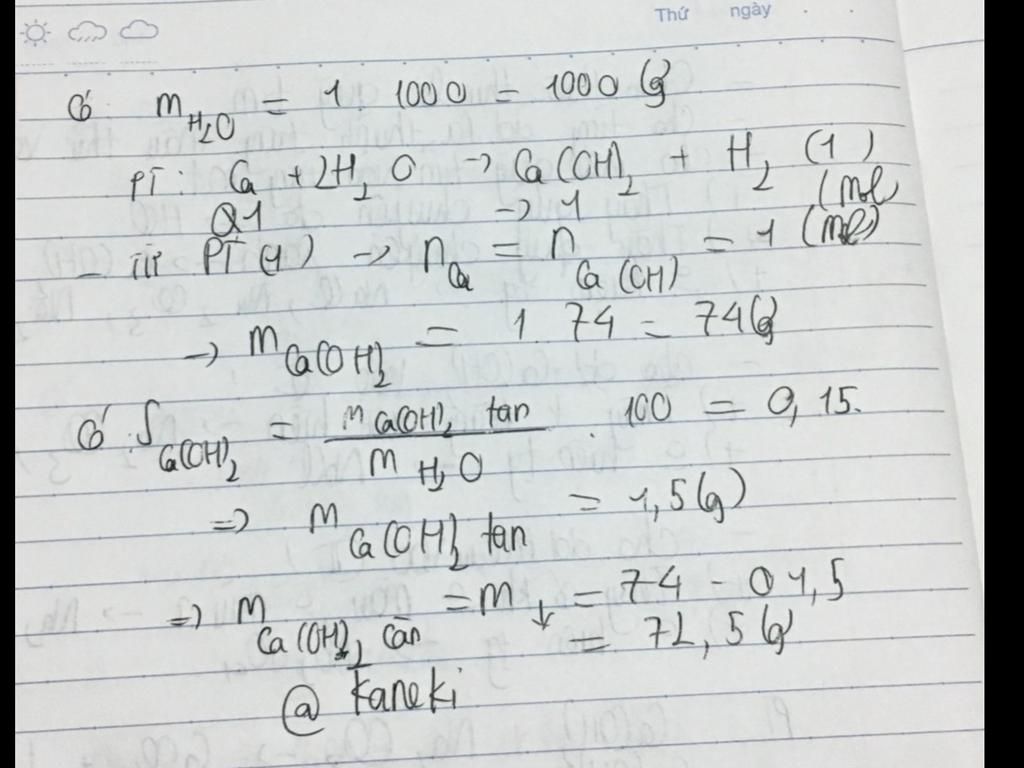 Thứ ngày
Có m H₂O = 1 1000 = 1000 (g)
PT: Ca + 2H₂O → Ca(OH)₂ + H₂ (1)
1 → 1 (mol)
- từ PT (1) → n Ca = n Ca(OH) = 1 (mol)
→ m Ca(OH)₂ = 1. 74 = 74 (g)
Có S Ca(OH)₂ = m Ca(OH)₂ tan / m H₂O . 100 = 0,15.
=> m Ca(OH)₂ tan = 1,5 (g)
=> m Ca(OH)₂ cặn = m↓ = 74 - 01,5
= 72,5 (g)
@ kaneki